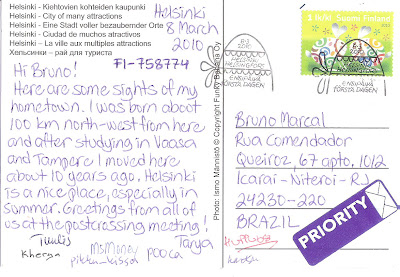 Helsinki - Kiehtovien kohteiden kaupunki
Helsinki - City of many attractions
Helsinki - Eine Stadt voller bezaubernder Orte
Helsinki - Ciudad de muchos atractivos
Helsinki – La ville aux multiples attractions
Хельсинки – рай для туриста
Helsinki
8 March
2010
FI-758774
Hi Bruno!
Here are some sights of my
hometown. I was born about
100 km north-west from here
and after studying in Vaasa
and Tampere I moved here
about 10 years ago. Helsinki
is a nice place, especially in
summer. Greetings from all of
us at the postcrossing meeting!
Tuulis
Tarya
MsMoney
pooca
Kherga
Photo: Ismo Männistö © Copyright Funky
Suomi Finland
ENSIPÄIVÄ
FÖRSTA DAGEN
Bruno Marcal
Rua Comendador
Queiroz, 67 apto, 1012
Icarai - Niteroi - RJ
24230-220
BRAZIL
PRIORITY